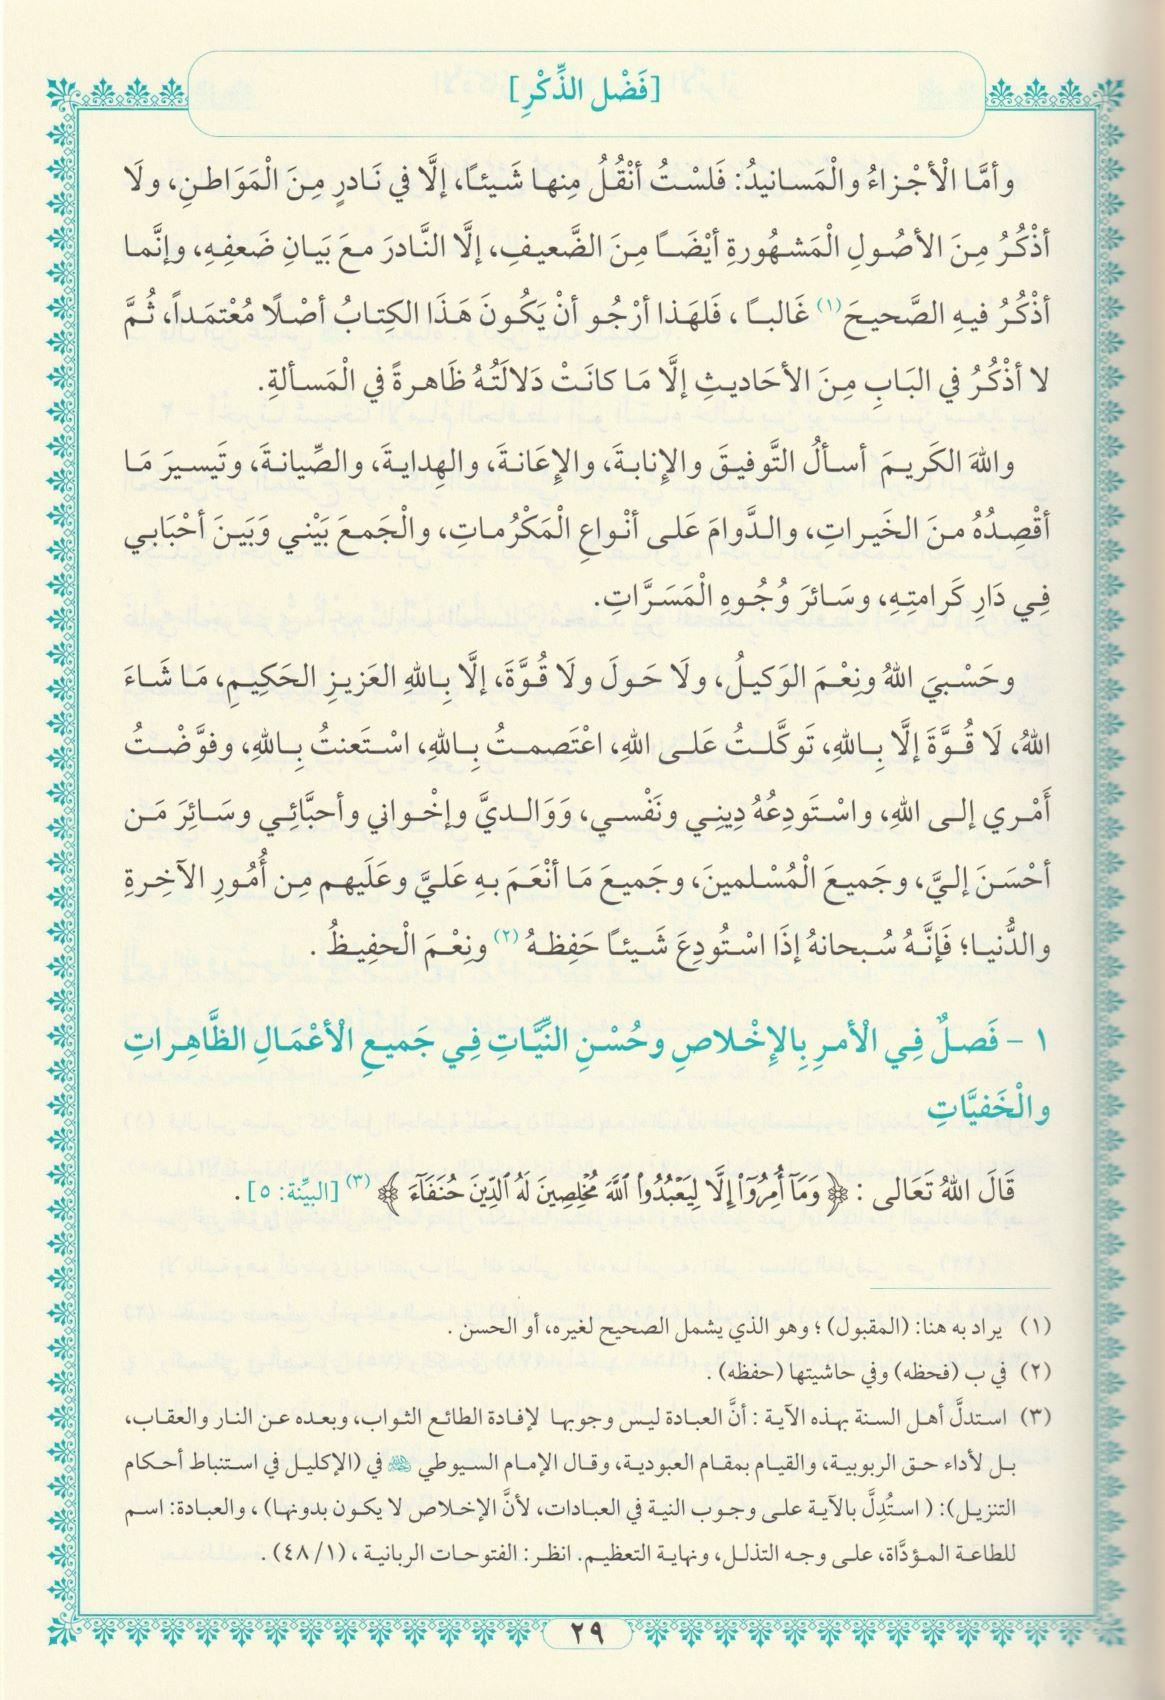 [فَضْل الذِّكْرِ]
وأمَّا الْأجْزاءُ والْمَسانيدُ: فَلسْتُ أنْقُلُ مِنها شَيئاً، إلَّا في نَادرٍ مِنَ الْمَوَاطنِ، ولَا
أذْكُرُ مِنَ الأصُولِ الْمَشهُورةِ أيْضَاً مِنَ الضَّعيفِ، إلَّا النَّادرَ معَ بَيانِ ضَعفِهِ، وإنَّما
أذْكُرُ فيهِ الصَّحيحَ(١) غَالبـاً، فَلهَذا أرْجُو أنْ يَكُونَ هَذَا الكِتابُ أصْلًا مُعْتمَداً، ثُمَّ
لا أذْكُرُ في البَابِ مِنَ الأحَاديثِ إلَّا مَا كانَتْ دَلالَتُهُ ظَاهرةً في الْمَسألةِ.
واللهَ الكَريمَ أسألُ التَّوفيقَ والإنابةَ، والإعَانةَ، والهِدايةَ، والصِّيانةَ، وتَيسيرَ مَا
أقْصِدُهُ منَ الخَيراتِ، والدَّوامَ عَلى أنْواعِ الْمَكْرُماتِ، والْجَمعَ بَيْني وَبَينَ أحْبَابي
فِي دَارِ كَرامتِهِ، وسَائرَ وُجُوهِ الْمَسَرَّاتِ.
وحَسْبيَ اللهُ ونِعْمَ الوَكيلُ، ولَا حَولَ ولَا قُوَّةَ، إلَّا بِاللهِ العَزيزِ الحَكِيمِ، مَا شَاءَ
اللهُ، لَا قُوَّةَ إلَّا بِاللهِ، تَوكَّلتُ عَلى اللهِ، اعْتَصمتُ بِاللهِ، اسْتَعنتُ بِاللهِ، وفوَّضْتُ
أَمْري إلى اللهِ، واسْتَودِعُهُ دِينِي ونَفْسي، وَوَالديَّ وإخْواني وأحبَّائِي وسَائِرَ مَن
أحْسَنَ إليَّ، وجَميعَ الْمُسْلمينَ، وجَميعَ مَا أنْعَمَ بهِ عَليَّ وعَلَيهم مِن أُمُورِ الآخِرةِ
والدُّنيا؛ فَإنَّهُ سُبحانهُ إذَا اسْتُودِعَ شَيئاً حَفِظهُ(٢) ونِعْمَ الْحفِيظُ.
١ - فَصلٌ فِي الْأمرِ بِالإخْلاصِ وحُسْنِ النِّيَّاتِ فِي جَميعِ الْأعْمَالِ الظَّاهِراتِ
والْخَفيَّاتِ
قَالَ اللهُ تَعَالى: ﴿وَمَآ أُمِرُوٓا۟ إِلَّا لِيَعْبُدُوا۟ ٱللَّهَ مُخْلِصِينَ لَهُ ٱلدِّينَ حُنَفَآءَ﴾(٣) [البيِّنة: ٥].
(١) يراد به هنا: (المقبول)؛ وهو الذي يشمل الصحيح لغيره، أو الحسن.
(٢) في ب (فحظه) وفي حاشيتها (حفظه).
(٣) استدلَّ أهل السنة بهذه الآية: أنَّ العبادة ليس وجوبها لإفادة الطائع الثواب، وبعده عن النار والعقاب،
بل لأداء حق الربوبية، والقيام بمقام العبودية، وقال الإمام السيوطي في (الإكليل في استنباط أحكام
التنزيل): (استُدِلَّ بالآية على وجوب النية في العبادات، لأنَّ الإخلاص لا يكون بدونها)، والعبادة: اسم
للطاعة المؤدَّاة، على وجه التذلل، ونهاية التعظيم. انظر: الفتوحات الربانية، (٤٨/١).
٢٩